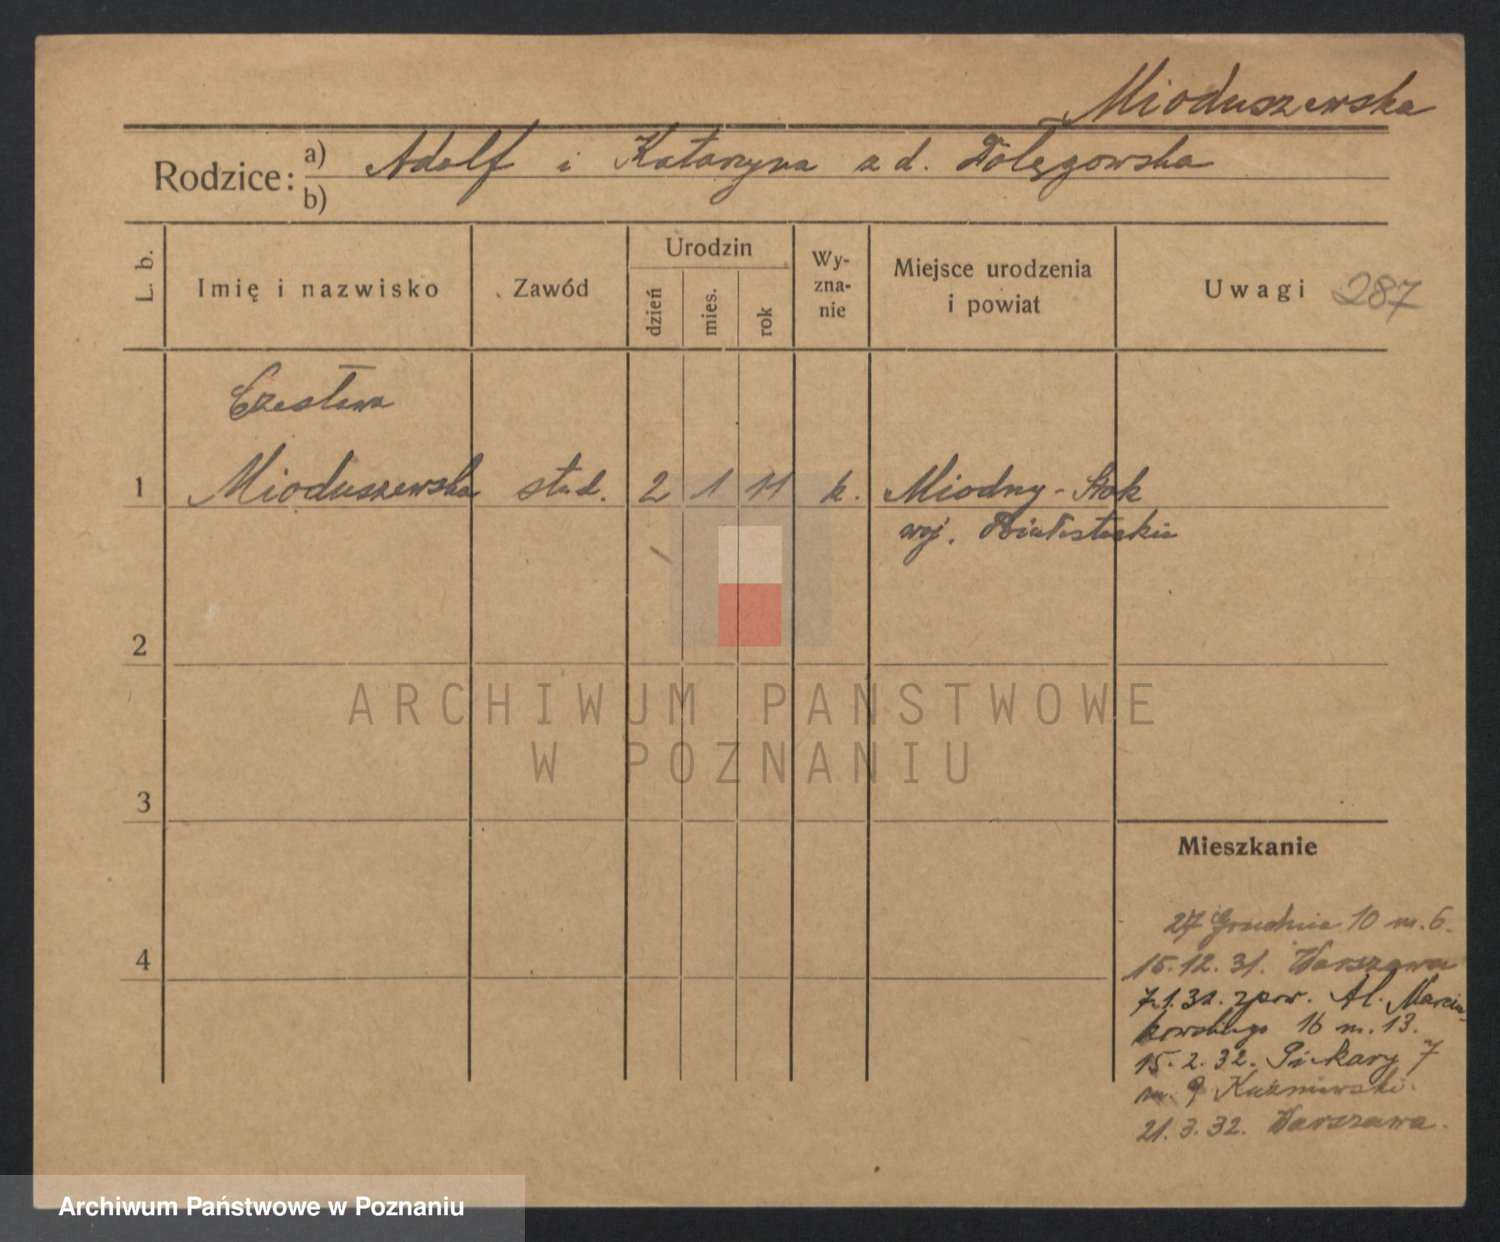 Mioduszewska
Rodzice: a) Adolf i Katarzyna z d. Dołęgowska
b)
L. b.
Imię i nazwisko
Zawód
Urodzin
dzień
mies.
rok
Wy-
zna-
nie
Miejsce urodzenia
i powiat
Uwagi 287
Czesława
1 Mioduszewska stud. 2 1 11 k. Miodny-Stok
woj. Białostockie
2
ARCHIWUM PAŃSTWOWE
W POZNANIU
3
Mieszkanie
27 Grudnia 10 m. 6.
4
15.12.31. Warszawa
7.1.32. zpow. Al. Marcin-
kowskiego 16 m. 13.
15.2.32. Piekary 7
m. 9 Kuźmiewski.
21.3.32. Warszawa.
Archiwum Państwowe w Poznaniu